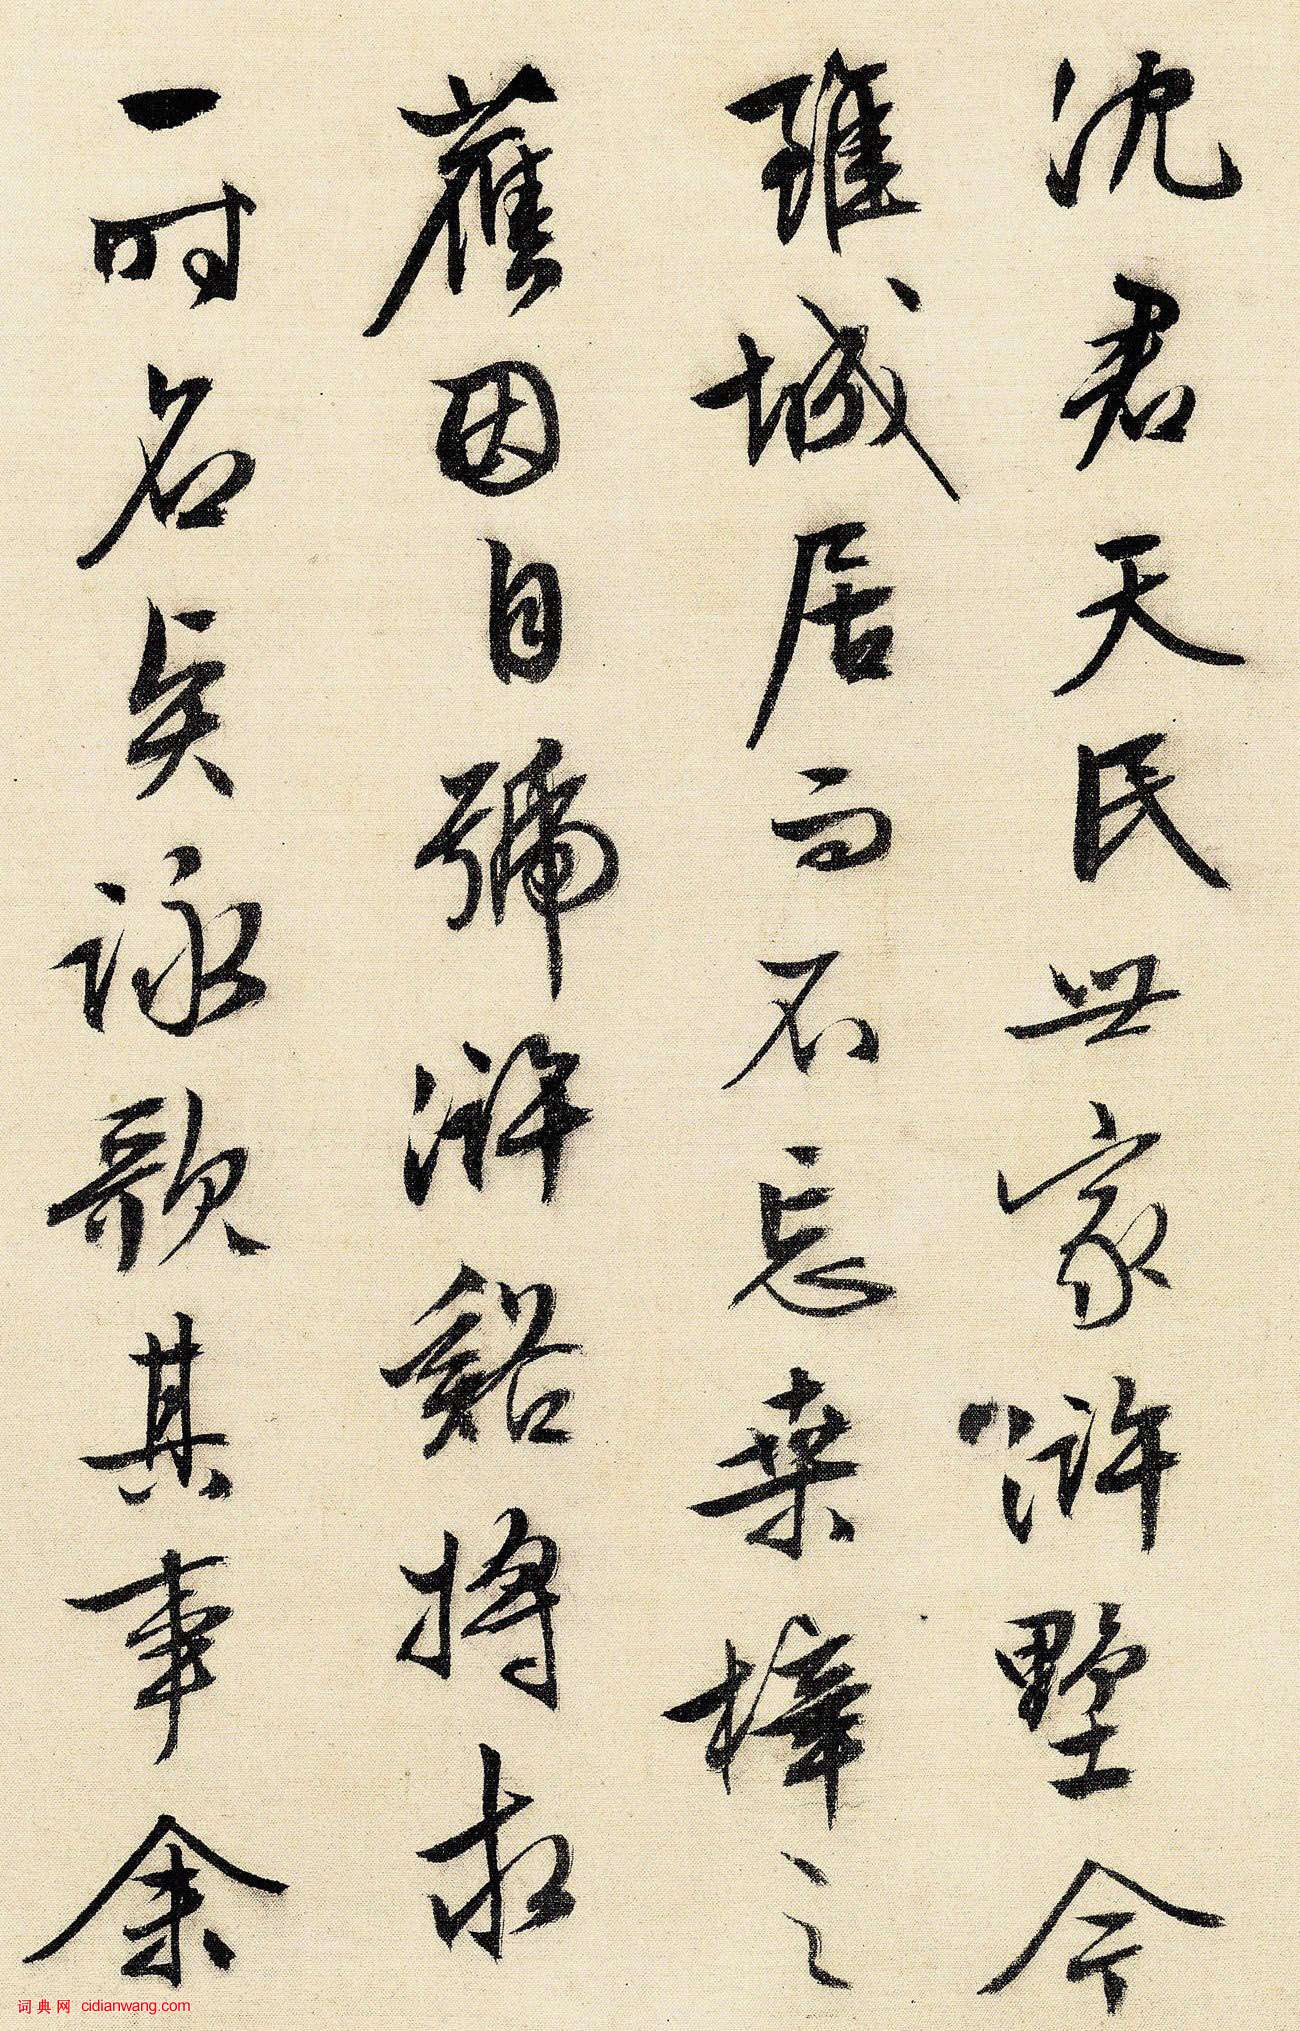 沈君天民世家滸墅今
雖城居而不忘桑梓之
舊因自號滸谿將求
一時名勝詠歌其事余
词典网 cidianwang.com